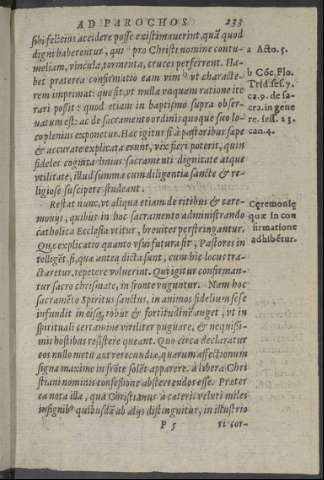 AD PAROCHOS 233
sibi felicius accidere posse existimaverint, quã quod
digni haberentur, qui pro Christi nomine contu-
meliam, vincula, tormenta, cruces perferrent. Ha-
bet praterea confirmatio eam vim ut characte-
rem imprimat: que fit, ut nulla vnquam ratione ite
rari possit: quod etiam in baptismo supra obser-
uatum est: ac de sacramento ordinis quoque suo lo-
co plenius exponetur. Hac igitur si à pastoribus sæpe
& accurate explicata erunt, vix fieri poterit, quin
fideles cognita huius sacramenti dignitate atque
vtilitate, illud summa cum diligentia sancte & re-
ligiose suscipere studeant.
Restat nunc, vt aliqua etiam de ritibus & cere-
monijs, quibus in hoc sacramento administrando
catholica Ecclesia vtitur, breuiter perstringantur.
Quæ explicatio quanto vsui futura sit, Pastores in
telliget, si, quæ antea dicta sunt, cum hic locus tra-
ctaretur, repetere voluerint. Qui igitur confirman-
tur sacro chrismate, in fronte vnguntur. Nam hoc
sacramẽto Spiritus sanctus, in animos fidelium sese
infundit in eisq, robur & fortitudinẽ auget, vt in
spirituali certamine viriliter pugnare, & nequissi-
mis hostibus resistere queant. Quo circa declaratur
eos nullo metu aut verecundia, quarum affectionum
signa maxime in frõte solẽt apparere, à libera Chri
stiani nominis confessione absterrendos esse. Præter
ea nota illa, qua Christianus à cæteris veluti miles
insignibº quibusdã ab alijs distinguitur, in illustrio
P 5 ri cor-
a Acto. 5.
b Cõc. Flo.
Trid. ses. 7.
ca. 9. de sa-
cra. in gene
re. sess. 23.
can. 4.
Ceremoniæ
quæ in con
firmatione
adhibẽtur.